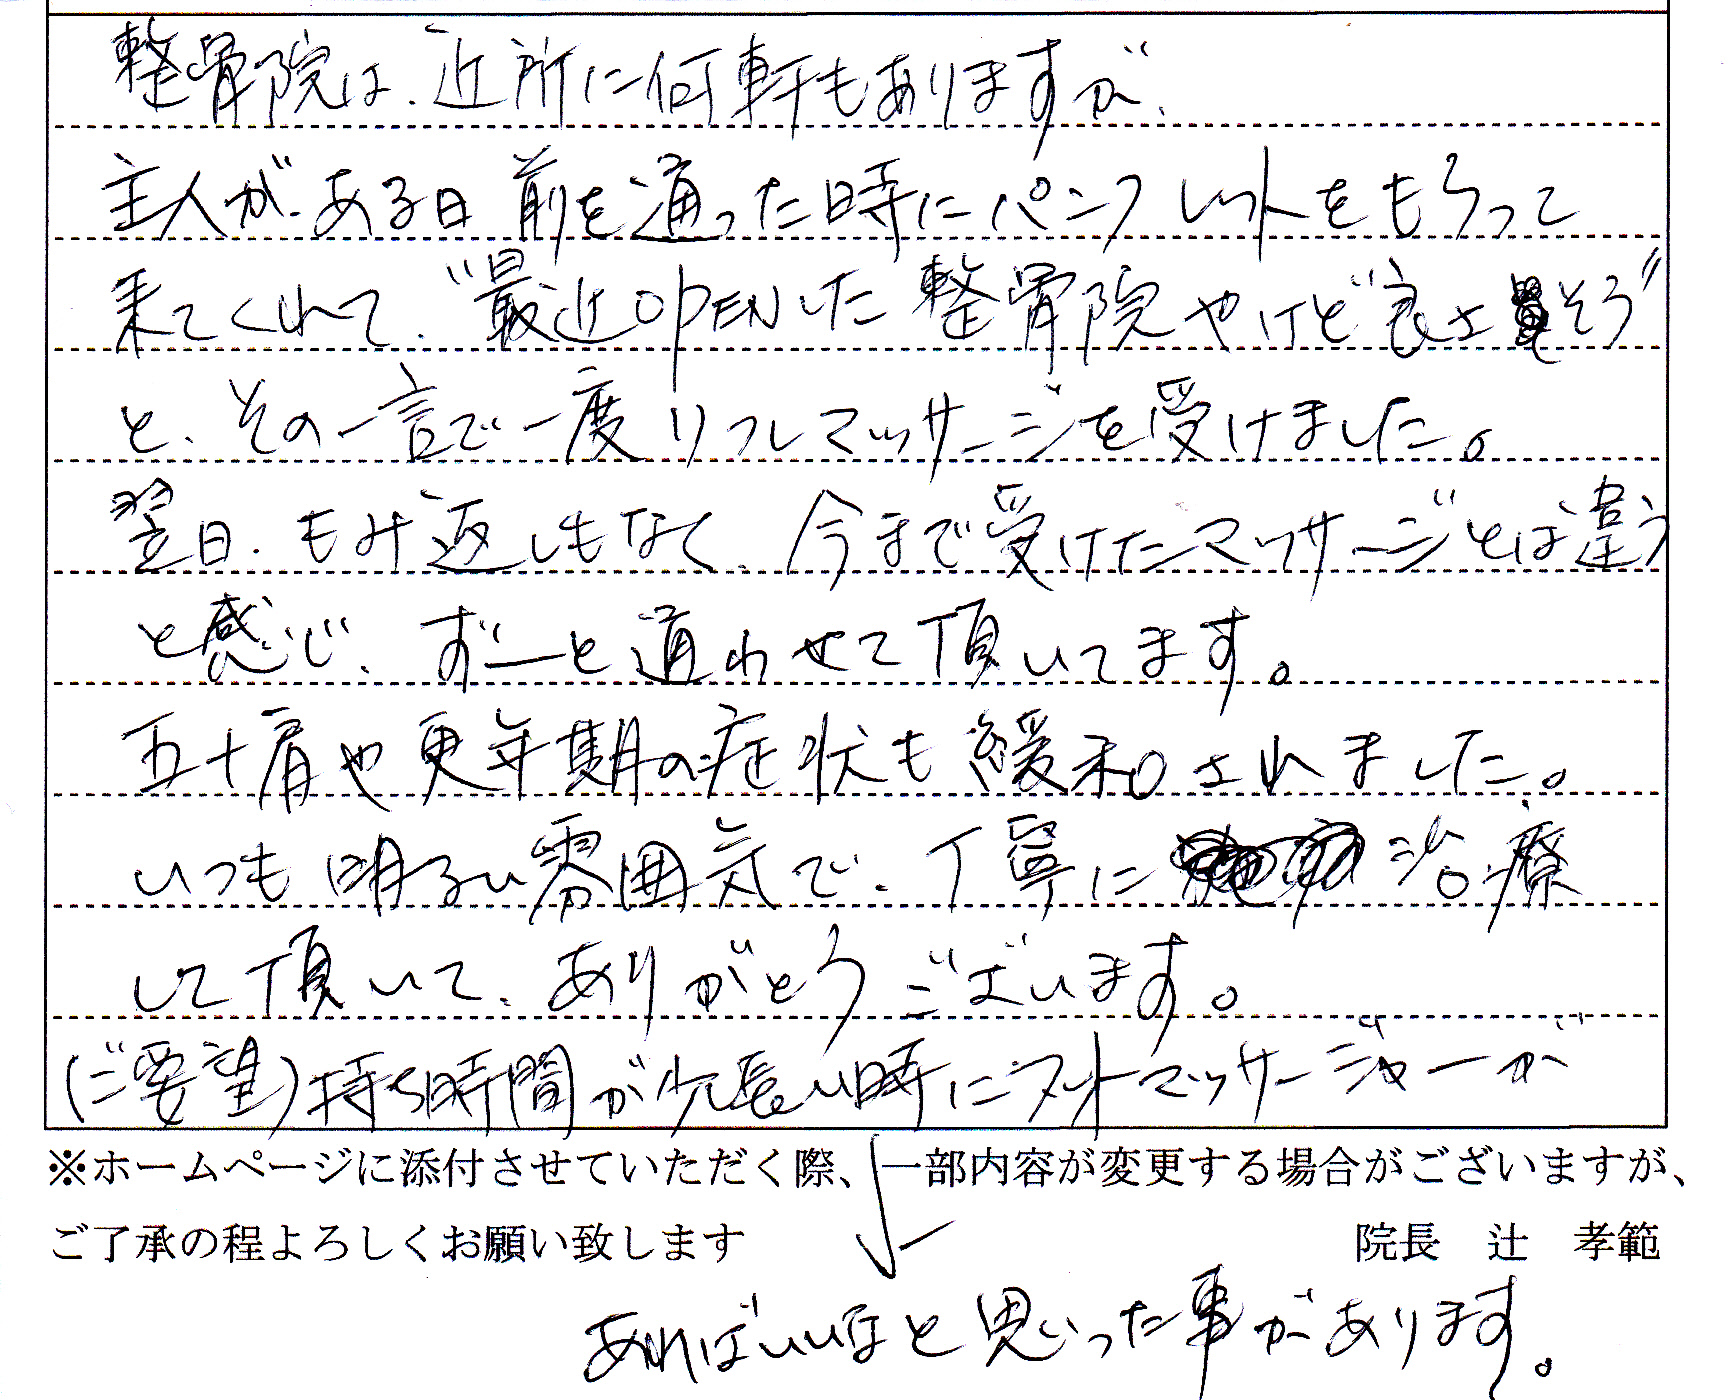 整骨院は、近所に何軒もありますが、
主人が、ある日前を通った時にパンフレットをもらって
来てくれて、“最近OPENした整骨院やけど良さそう”
と、その一言で一度リフレマッサージを受けました。
翌日、もみ返しもなく、今まで受けたマッサージとは違う
と感じ、ずーと通わせて頂いてます。
五十肩や更年期の症状も緩和されました。
いつも明るい雰囲気で、丁寧に治療
して頂いて、ありがとうございます。
(ご要望)持ち時間が少し長い時にフットマッサージャーが
※ホームページに添付させていただく際、一部内容が変更する場合がございますが、
ご了承の程よろしくお願い致します 院長 辻 孝範
あればいいなと思った事があります。